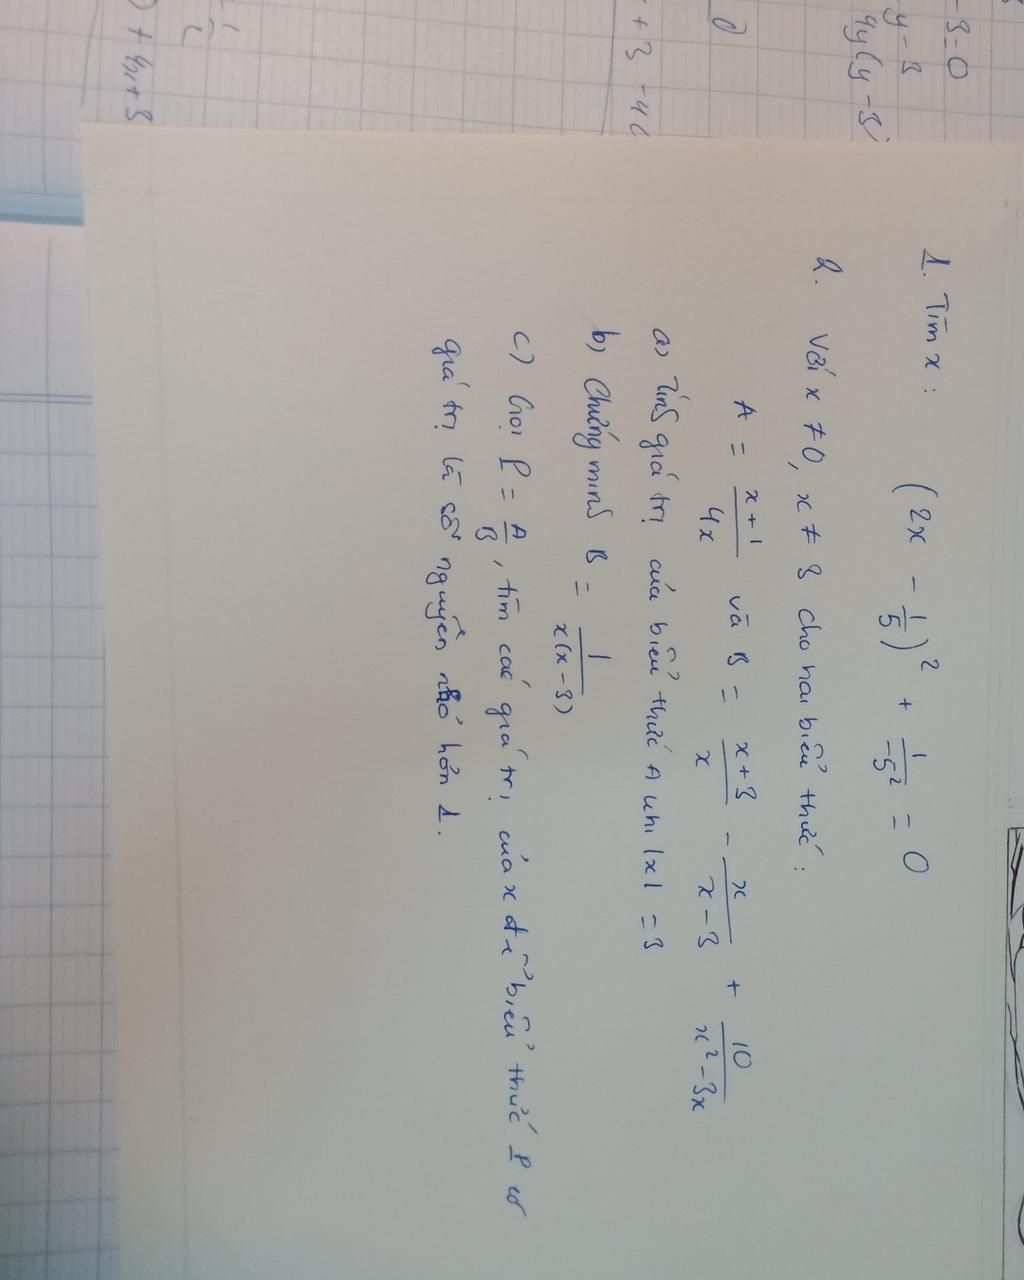 -3=0
y-3
4y(y-3)
x+3 -4(
) + 4x+3
1. Tìm x : (2x - 1/5)² + 1/-5² = 0
2. Với x ≠ 0, x ≠ 3 cho hai biểu thức :
A = x+1/4x và B = x+3/x - x/x-3 + 10/x²-3x
a) Tính giá trị của biểu thức A khi |x| = 3
b) Chứng minh B = 1/x(x-3)
c) Gọi P = A/B, tìm các giá trị của x để biểu thức P có
giá trị là số nguyên nhỏ hơn 1.